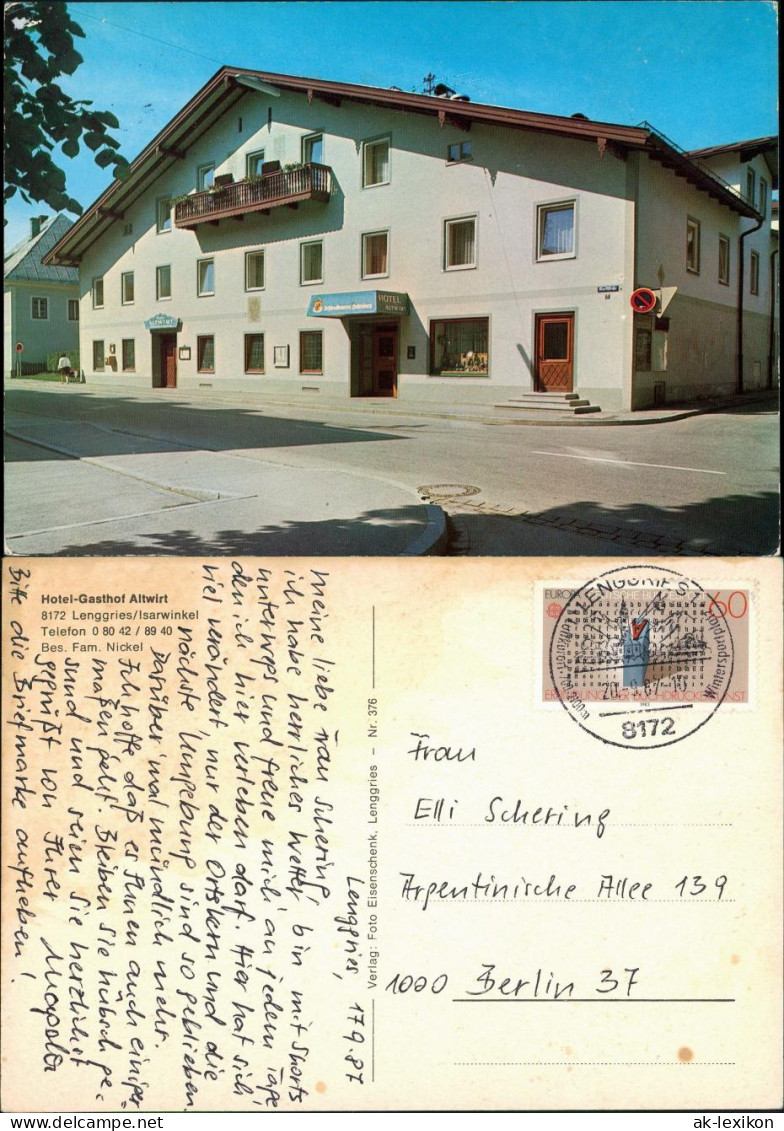 HOTEL
ALTWIRT
ALTWIRT
Hotel-Gasthof Altwirt
8172 Lenggries/Isarwinkel
Telefon 0 80 42 / 89 40
Bes. Fam. Nickel
Lenggries, 17.9.87
Meine liebe Frau Schering,
ich habe herrliches Wetter, bin mit Shorts
unterwegs und freue mich an jedem Tage,
den ich hier verleben darf. Hier hat sich
viel verändert, nur der Ortskern und die
nächste Umgebung sind so geblieben.
Darüber mal mündlich mehr.
Ich hoffe daß es Ihnen auch einiger=
maßen geht. Bleiben Sie hübsch ge=
sund und seien Sie herzlichst
gegrüßt von Ihrer
Bitte die Briefmarke aufheben!
Verlag: Foto Eisenschenk, Lenggries – Nr. 376
EUROPA DEUTSCHE BUNDESPOST
60
ERFINDUNG DER BUCHDRUCKERKUNST
1983
LENGGRIES 1
Wintersportplatz
8172
Frau
Elli Schering
Argentinische Allee 139
1000 Berlin 37
oldthing
ak-lexikon.com